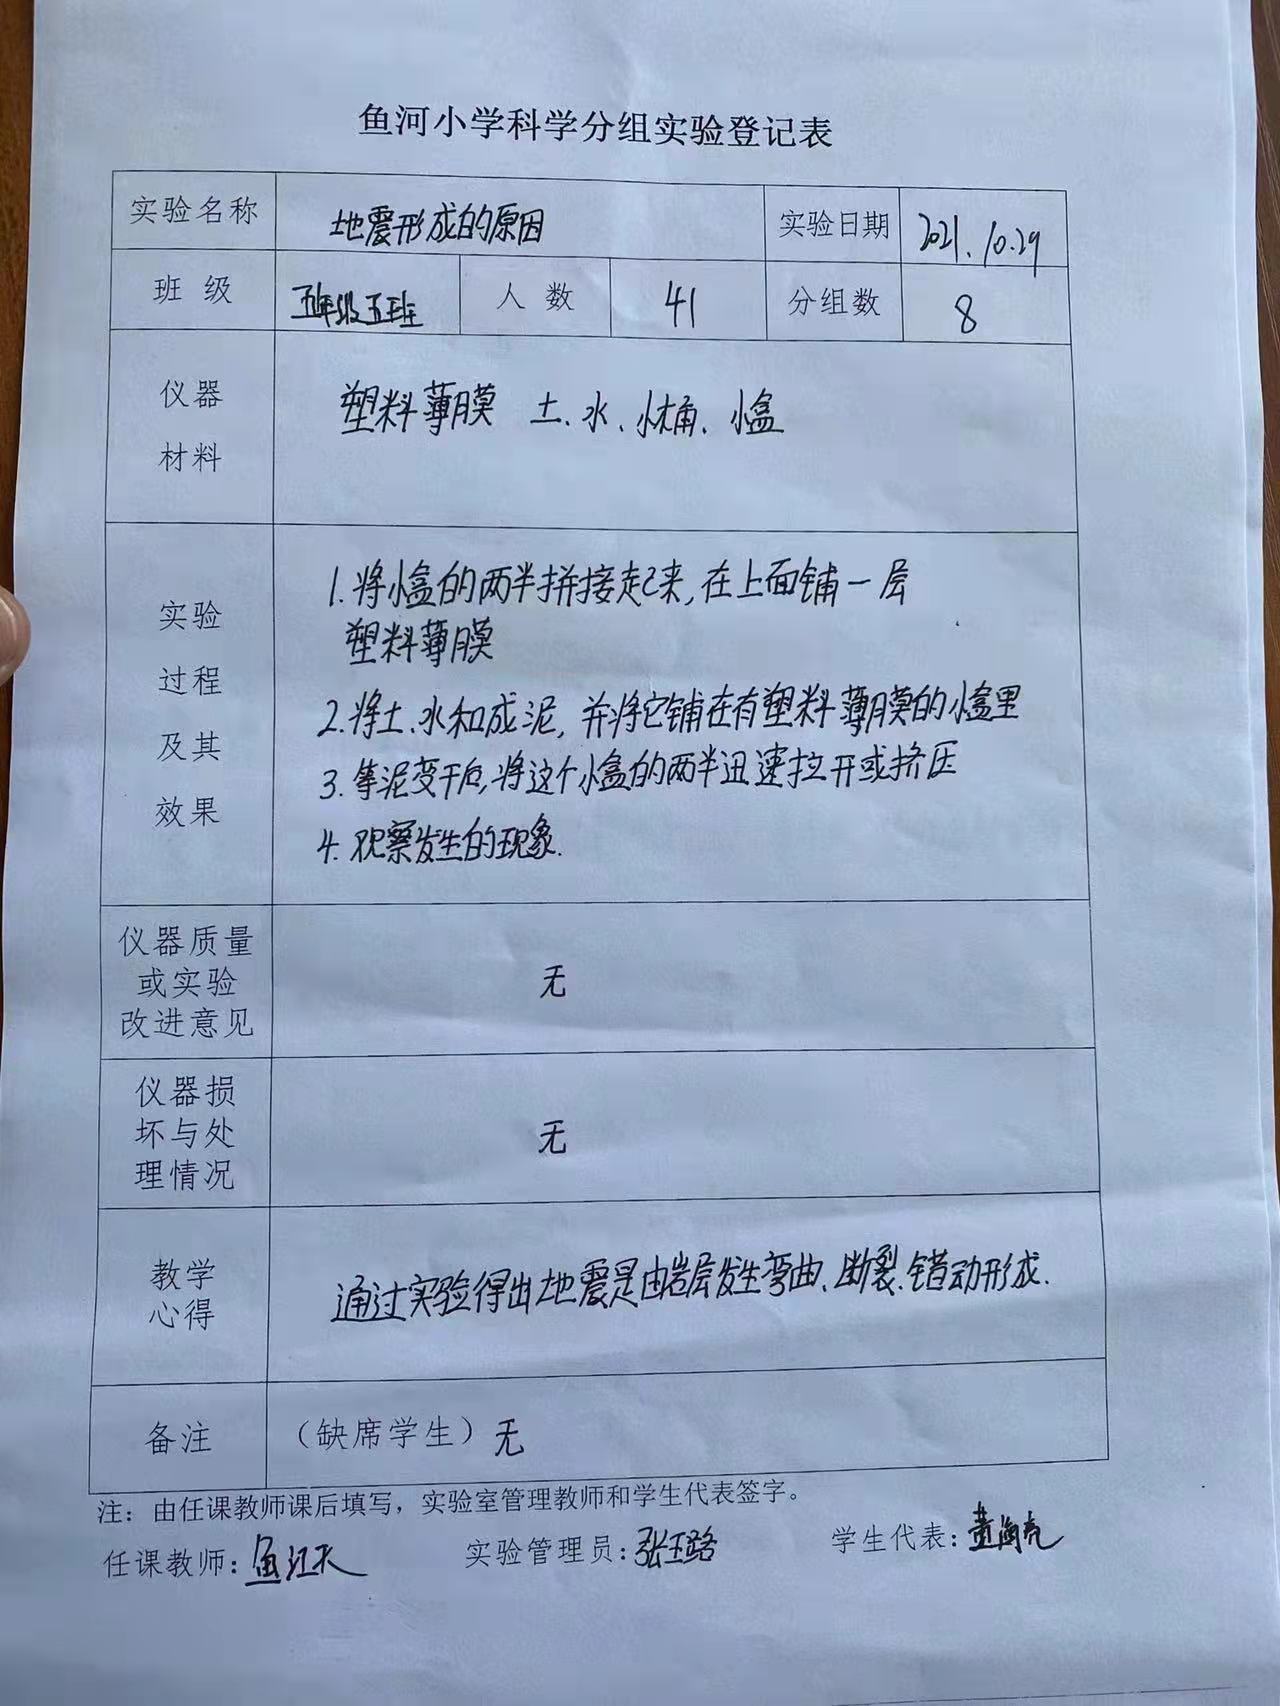 鱼河小学科学分组实验登记表
实验名称 地震形成的原因 实验日期 2021.10.29
班级 五年级五班 人数 41 分组数 8
仪器
材料
塑料薄膜 土、水、水桶、小盒
实验
过程
及其
效果
1.将小盒的两半拼接起来,在上面铺一层
塑料薄膜
2.将土、水和成泥,并将它铺在有塑料薄膜的小盒里
3.等泥变干后,将这个小盒的两半迅速拉开或挤压
4.观察发生的现象.
仪器质量
或实验
改进意见
无
仪器损
坏与处
理情况
无
教学
心得
通过实验得出地震是由岩层发生弯曲、断裂、错动形成.
备注 （缺席学生）无
注：由任课教师课后填写，实验室管理教师和学生代表签字。
任课教师：鱼江天 实验管理员：张玉路 学生代表：黄